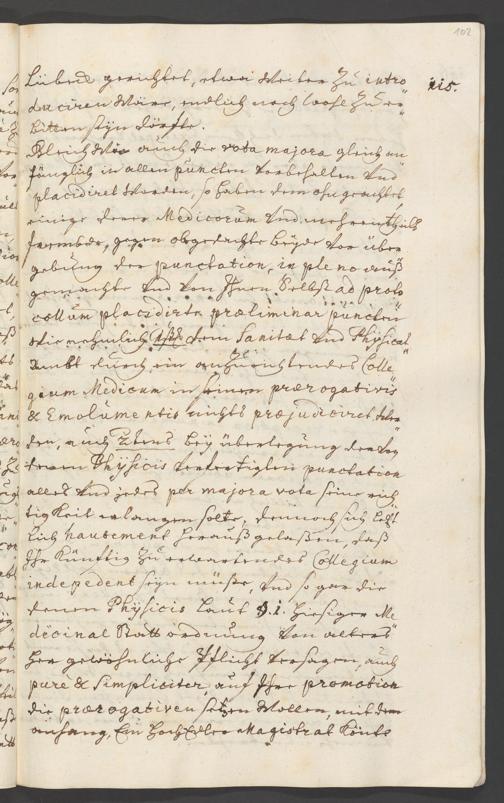 102
Liebend gerichtet, etwas weiter zu intro
xis.
duciren wäre, endlich noch wohl zu er
bitten seyn dörfte.
Gleichwie auch die vota majora gleich an
fänglich in allen puncten vorbehalten und
placidiret worden, so haben dem ohngeachtet
einige derer Medicorum und mehrentheils
frembde, gegen obgedachte beyde vor über
gebung der punctation, in pleno auß
gemachte und von Ihnen Selbst ad proto
collum placidirte præliminar puncten
wie nehmlich 1stens dem Sanitæt und Physicat
Ambt durch ein auffzurichtendes Colle
gium Medicum in seinen prærogativis
& Emolumentis nichts præjudiciret wer
den, auch 2tens bey überlegung der von
denen Physicis verfertigten punctation
alles und jedes per majora vota seine rich
tigkeit erlangen solte, dennoch sich letzt
lich hautement herauß gelaßen, daß
Ihr künftig zu erwartendes Collegium
indepedent seyn müße, und so gar die
denen Physicis laut §.1. hiesiger Me
dicinal Raths ordnung von alters
her gewöhnliche Pflicht versagen, auch
pure & simpliciter, auf Ihre promotion
die prærogativen setzen wollen, mit dem
anhang, Ein HochEdler Magistrat könte